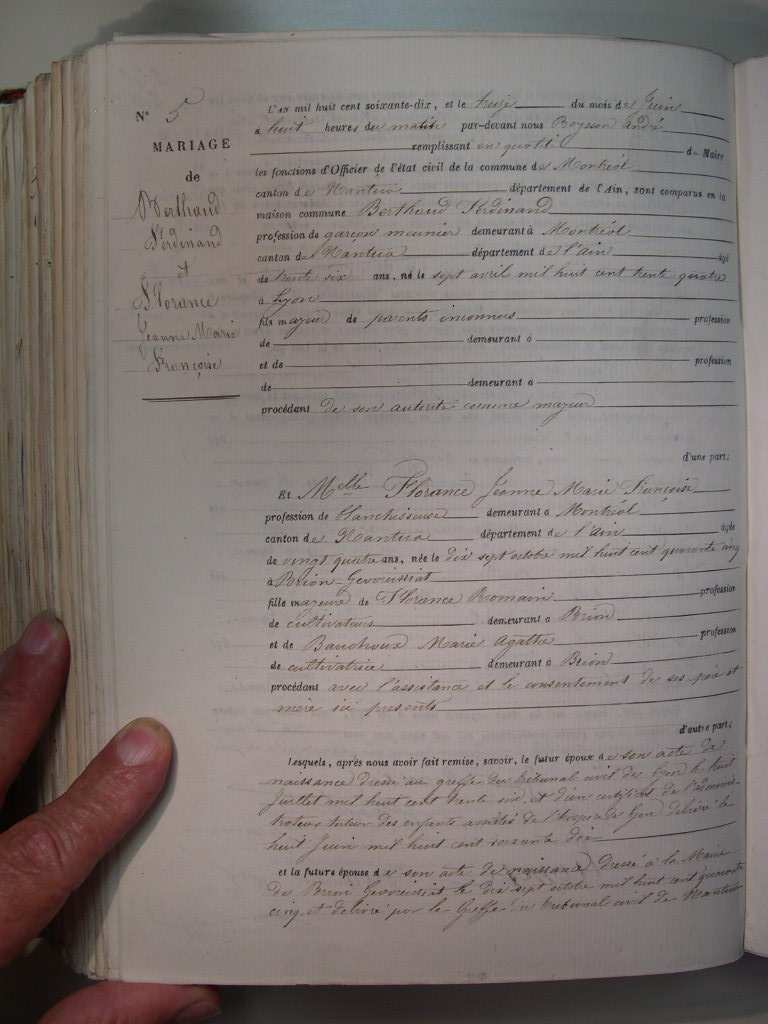 N° 5
MARIAGE
de
Berthaud
Ferdinand
et
Florance
Jeanne Marie
Françoise
L'AN mil huit cent soixante-dix, et le treize du mois de Juin
à huit heures du matin par-devant nous Boysson André
remplissant en qualité de Maire
les fonctions d'Officier de l'état civil de la commune de Montréal
canton de Nantua département de l'Ain, sont comparus en la
maison commune Berthaud Ferdinand
profession de garçon meunier demeurant à Montréal
canton de Nantua département de l'ain âgé
de trente six ans, né le sept avril mil huit cent trente quatre
à Lyon
fils majeur de parents inconnus profession
de demeurant à
et de profession
de demeurant à
procédant de son autorité comme majeur
d'une part;
Et Melle Florance Jeanne Marie Françoise
profession de blanchisseuse demeurant à Montréal
canton de Nantua département de l'Ain âgée
de vingt quatre ans, née le dix sept octobre mil huit cent quarante cinq
à Brion-Gevoissiat
fille majeure de Florance Romain profession
de cultivateurs demeurant à Brion
et de Marie Agathe profession
de cultivatrice demeurant à Brion
procédant avec l'assistance et le consentement de ses père et
mère ici présents
d'autre part;
Lesquels, après nous avoir fait remise, savoir, le futur époux de son acte de
naissance dressé au greffe du tribunal civil de Lyon le huit
Juillet mil huit cent trente six et d'un certificat de l'adminis-
trateur tuteur des enfants assistés de l'hospice de Lyon délivré le
huit Juin mil huit cent soixante dix
et la future épouse de son acte de naissance dressé à la Mairie
de Brion Gevoissiat le dix sept octobre mil huit cent quarante
cinq et délivré par le Greffe du tribunal civil de Nantua